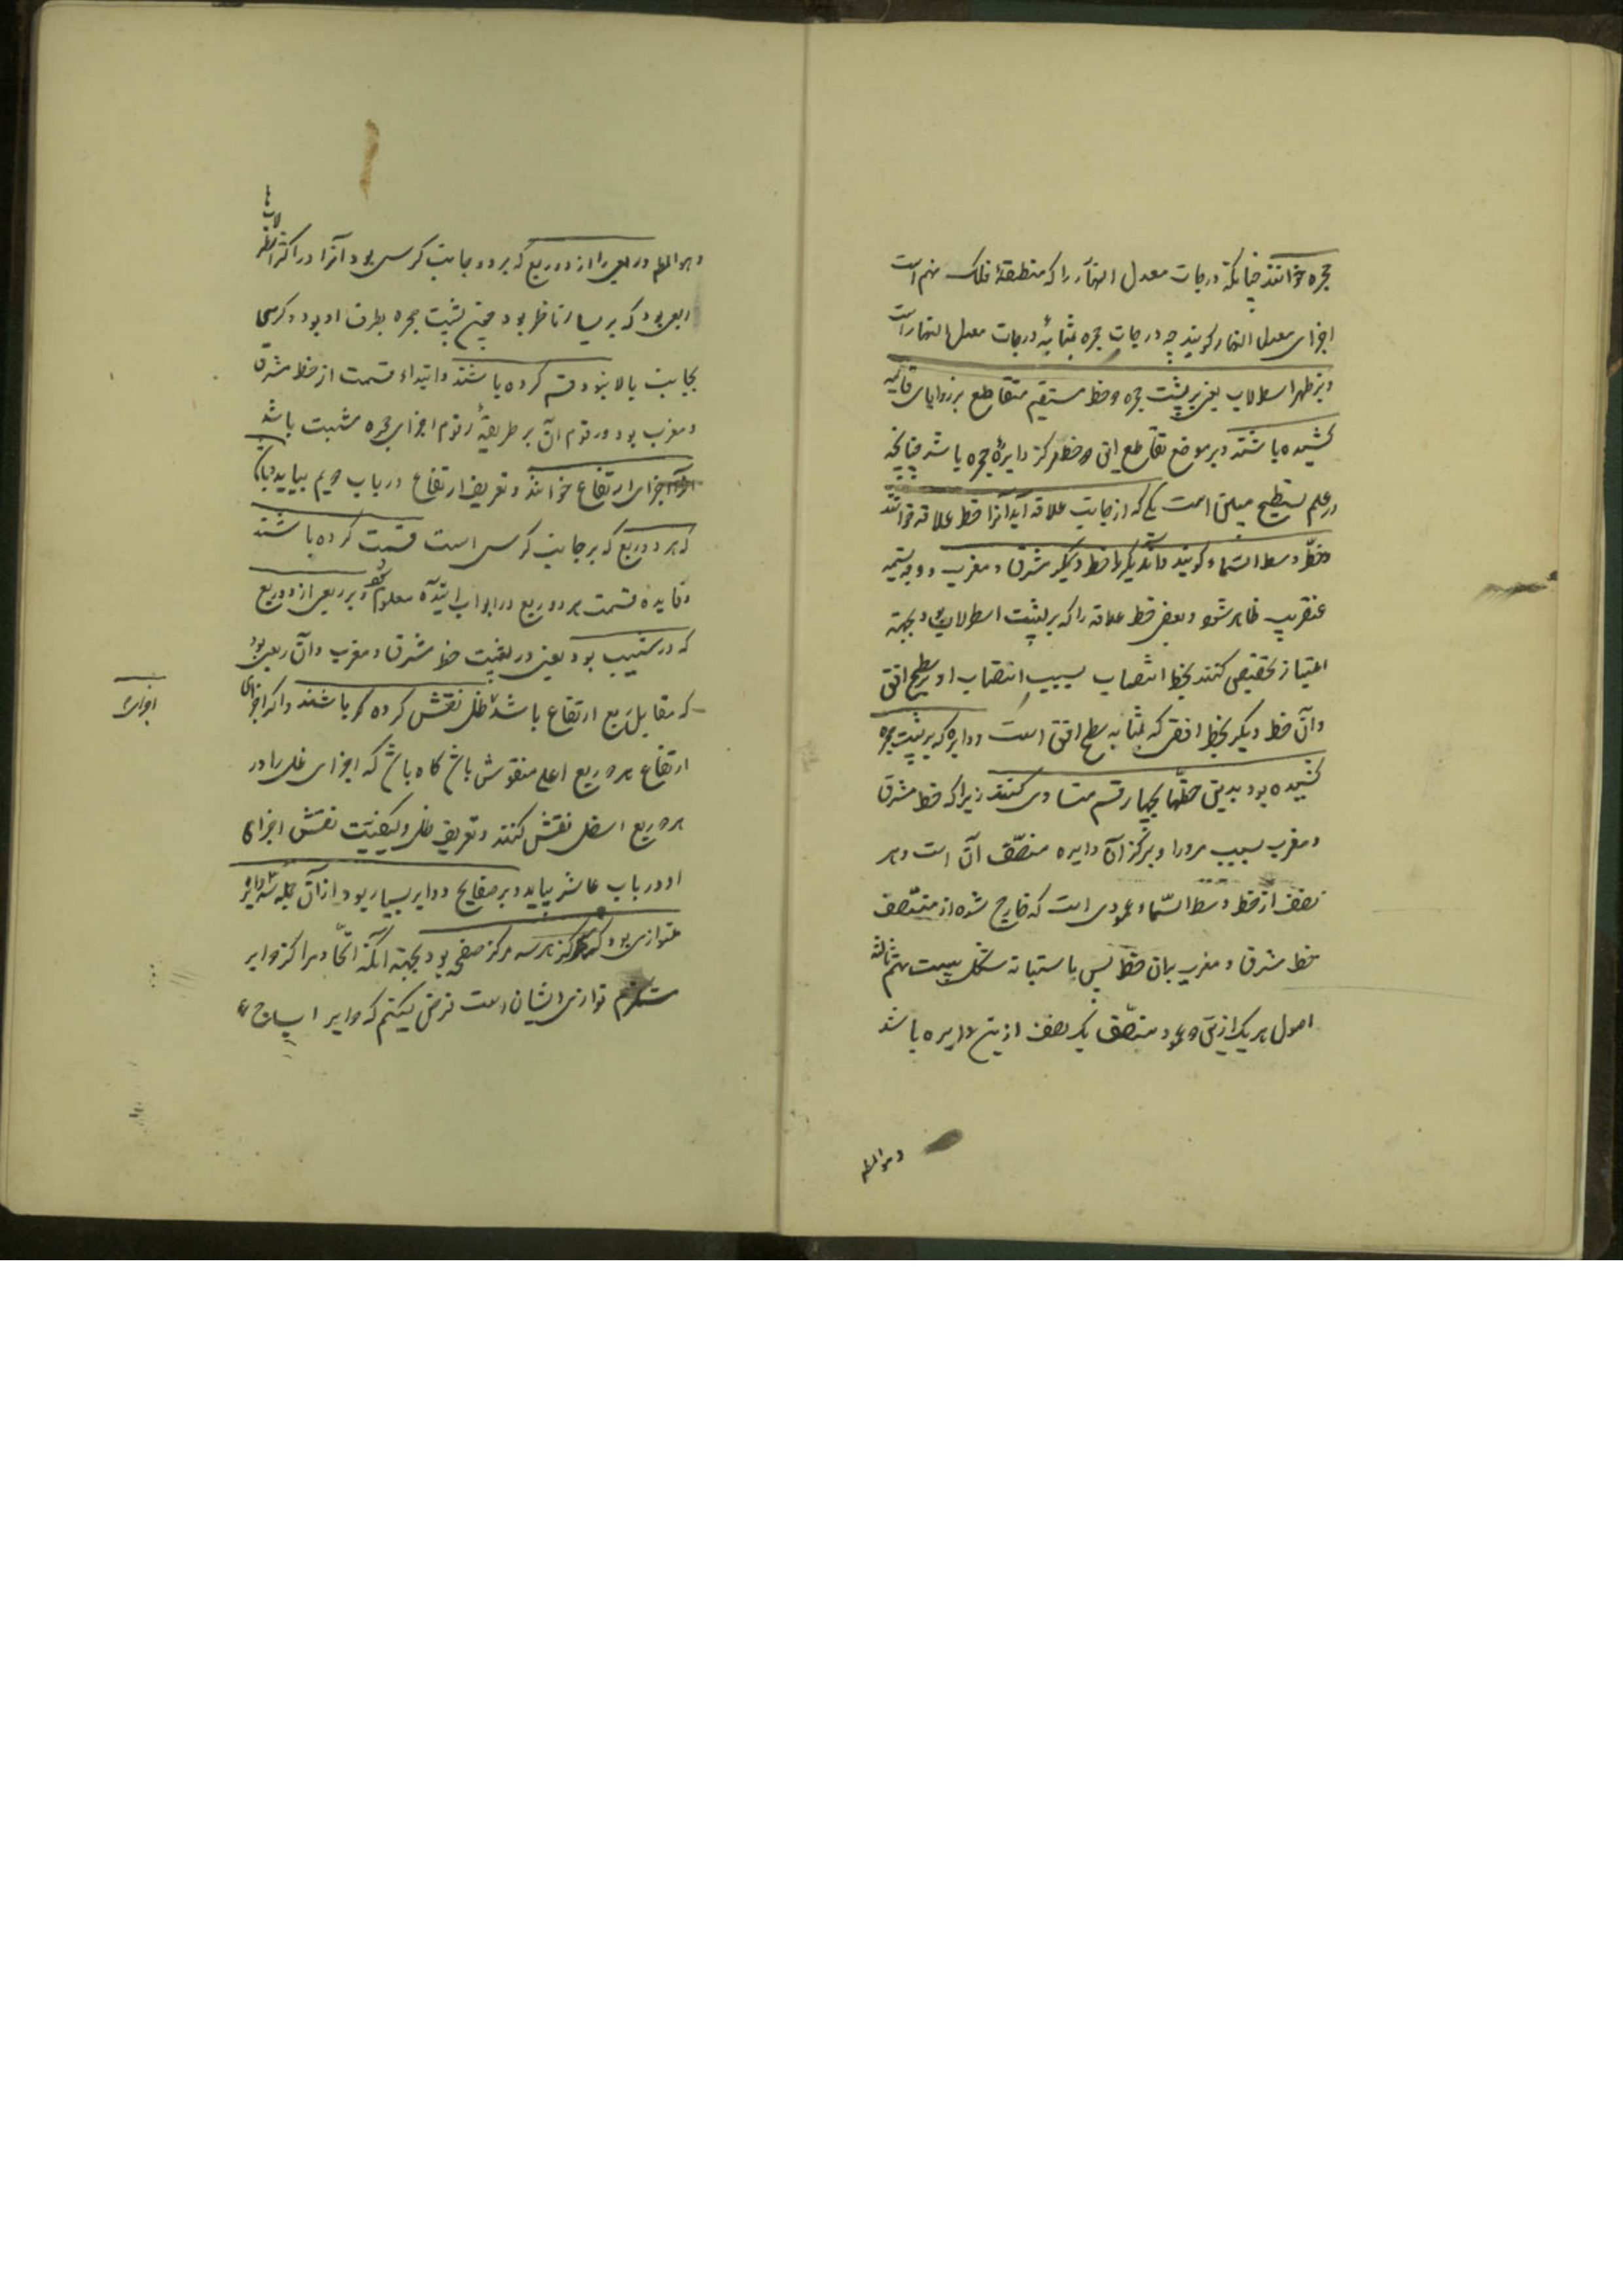 حجره خوانند چنانکه درجات معدل النهار را که منطقهٔ فلک نهم است
اجزای معدل النهار کویند چه درجات حجره بمثابهٔ درجات معدل النهار است
و بر ظهر اسطرلاب یعنی بر پشت حجره دو خط مستقیم متقاطع بر زوایای قایمه
کشیده باشند و بر موضع تقاطع این دو خط مرکز دایرهٔ حجره باشد چنانچه
در علم تسطیح مبین است یکی که از جانب علاقه آید آنرا خط علاقه خوانند
و خط وسط السماء کویند و آن دیکر را خط دیکر مشرق و مغرب و وجه تسمیه
عنقریب ظاهر شود و بعضی خط علاقه را که بر پشت اسطرلاب بود بجهة
امتیاز تخصیص کنند بخط انتصاب بسبب انتصاب او بر سطح افق
و آن خط دیکر بخط افقی که بمثابه سطح افق است و دایره که بر پشت حجره
کشیده بود بدین خطها بچهار قسم متساوی کنند زیرا که خط مشرق
و مغرب بسبب مرور او بمرکز آن دایره منصّف آن است و هر
نصف از خط وسط السّماء عمودی است که خارج شده از منتصف
خط مشرق و مغرب بران خط پس باستبانه شکل بیست نهم ثالثه
اصول هر یک ازین دو عمود منصّف یک نصف ازین دایره باشد
و هو المط
و هو المط و ربعی را از دو ربع که بر دو جانب کرسی بود آنرا در اکثر اسطرلابها
ربعی بود که بر یسار ناظر بود چون پشت حجره بطرف او بود و کرسی
بجانب بالا بنود قسم کرده باشند و ابتداء قسمت از خط مشرق
و مغرب بود و رقوم آن بر طریقهٔ رقوم اجزای حجره مثبت باشد
اجزای ارتفاع خوانند و تعریف ارتفاع در باب دویم بیاید
که هر دو ربع که بر جانب کرسی است قسمت کرده باشند
و فایده قسمت هر دو ربع در ابواب آینده معلوم شود و بر ربعی از دو ربع
که در شیب بود یعنی در پشت خط مشرق و مغرب و آن ربعی بود
که مقابل ربع ارتفاع باشد ظل نقش کرده باشند و اکر اجزای
ارتفاع هر دو ربع اعلی منقوش باشد کاه باشد که اجزای ظل را در
هر دو ربع اسفل نقش کنند و تعریف ظل و کیفیت نقش اجزای
او در باب عاشر بیاید و بر صفایح دوایر بسیار بود از آن جمله سه دایره
متوازی بود که مرکز هر سه مرکز صفحه بود بجهة آنکه اتحاد مراکز دوایر
مستلزم توازی ایشان است فرض میکنیم که دوایر ا ب ج د
اجزای